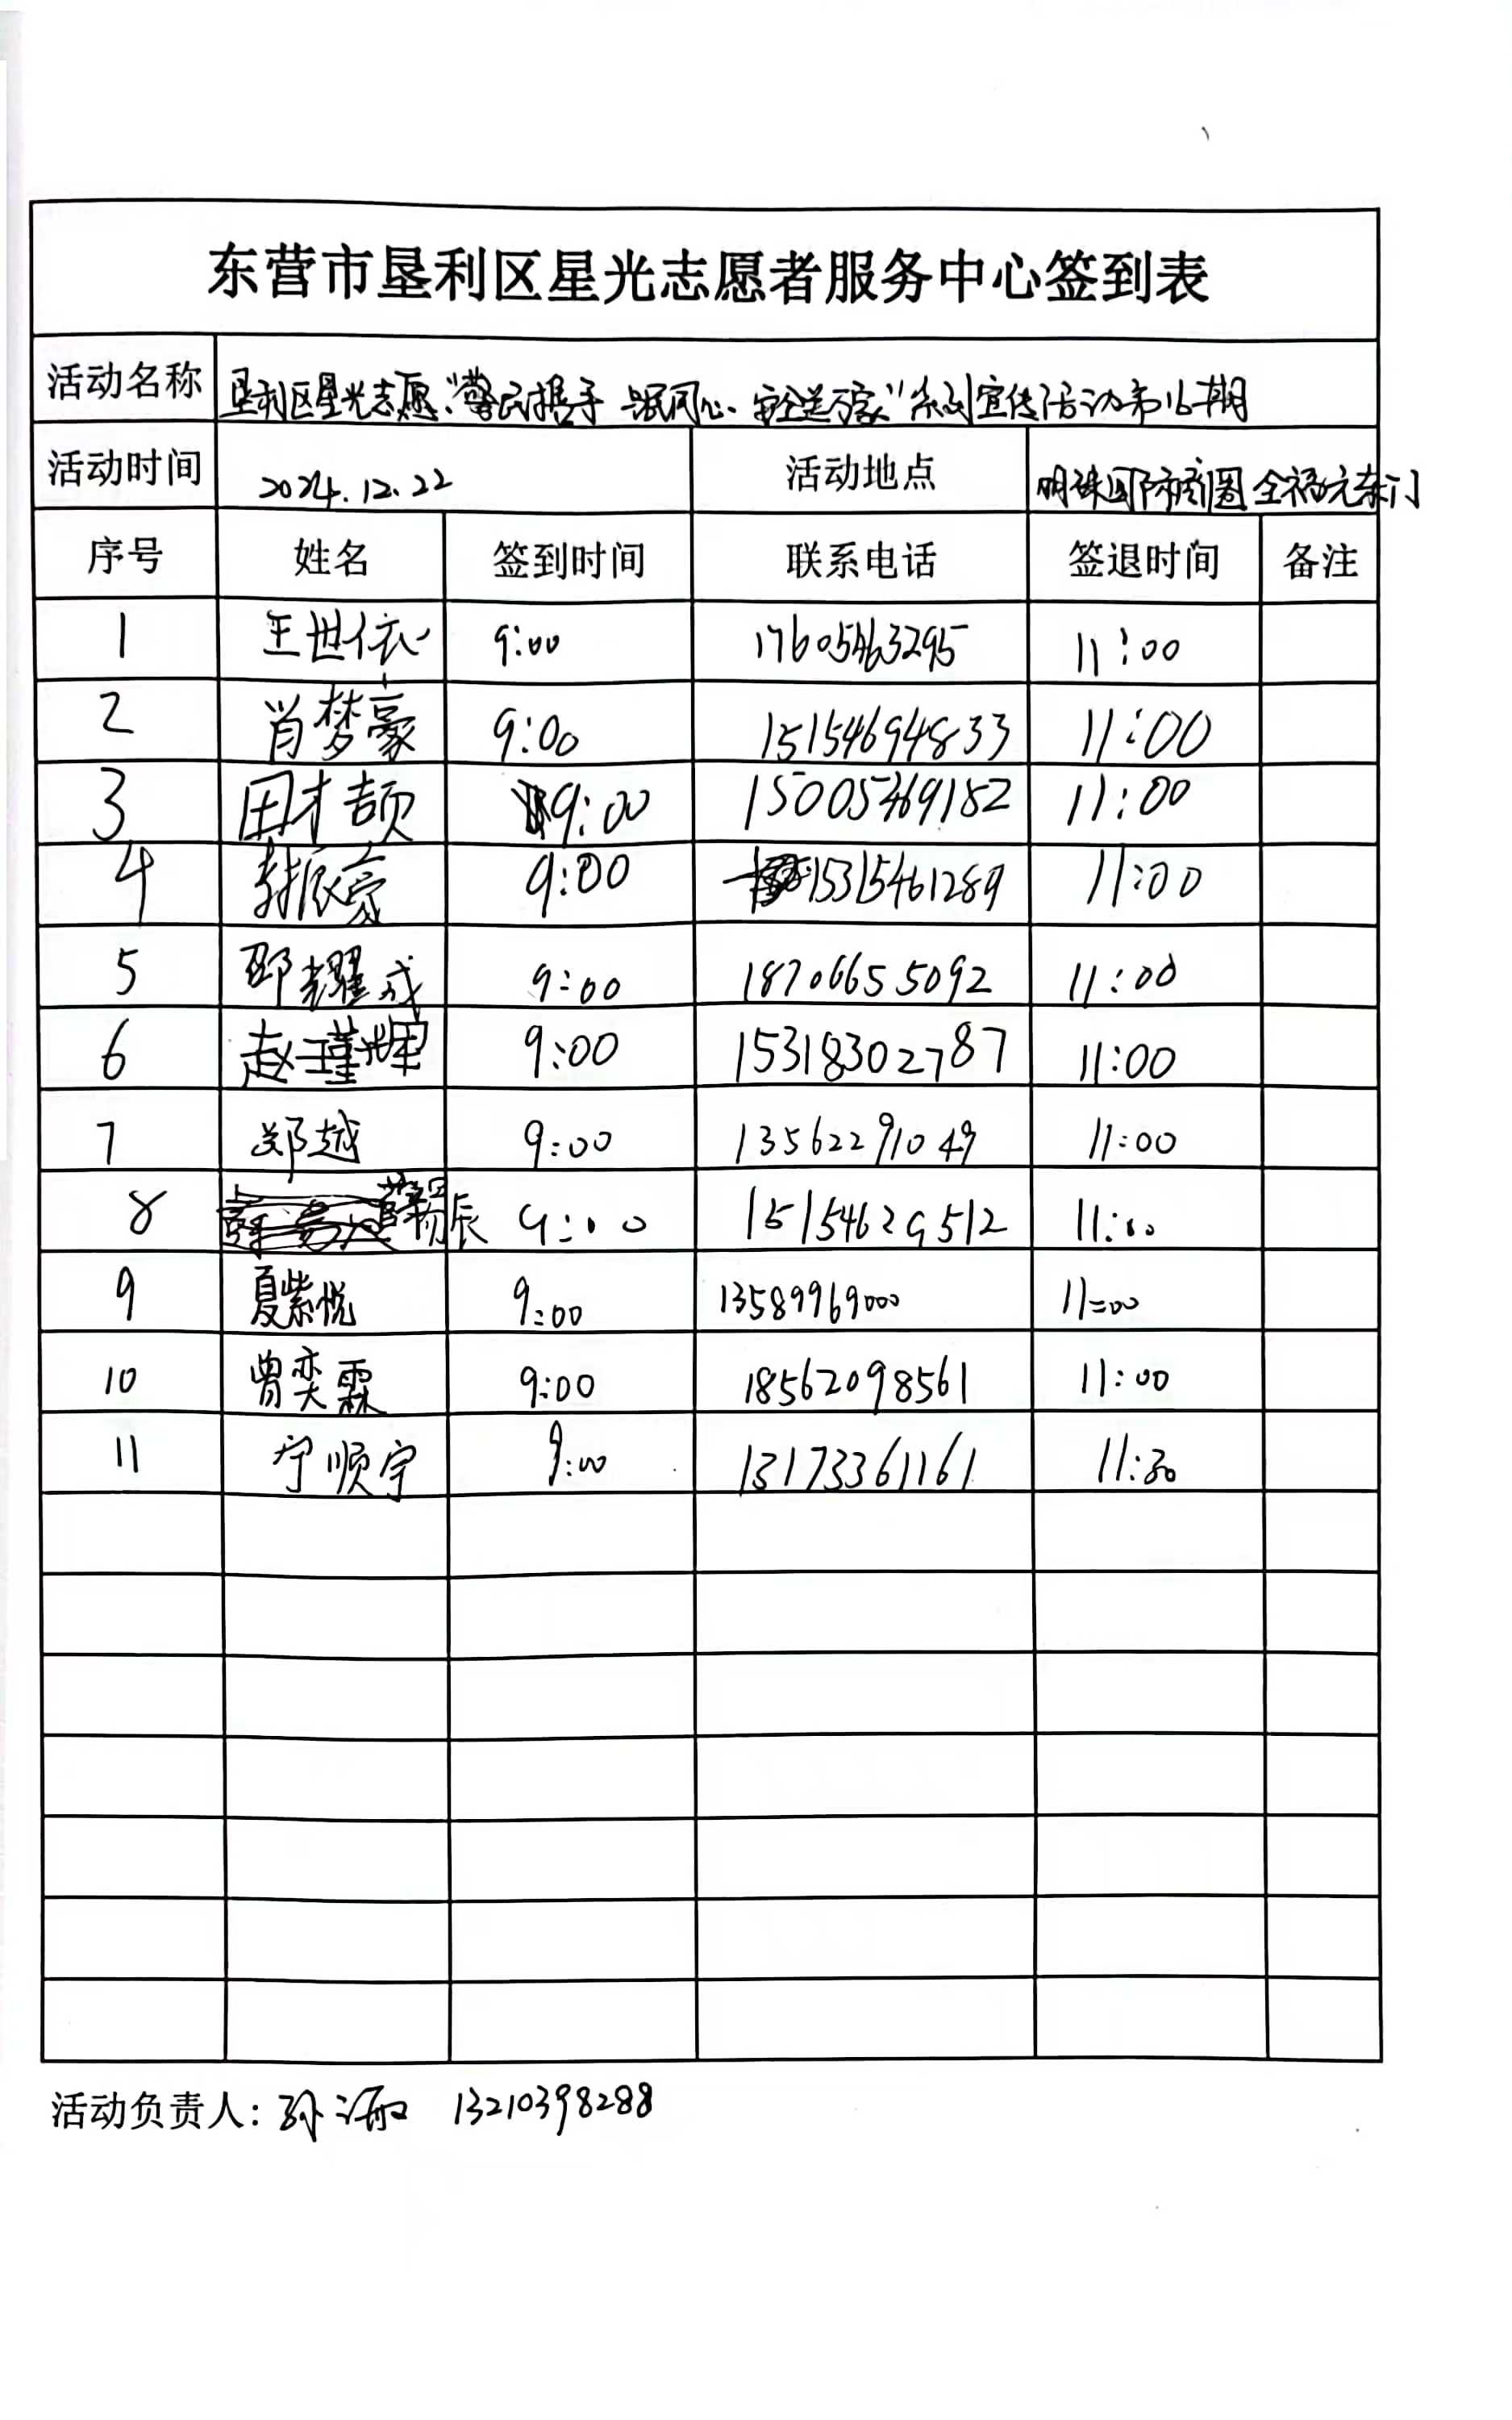 东营市垦利区星光志愿者服务中心签到表
活动名称 垦利区星光志愿“警民携手 同心 安全送万家”系列宣传活动第16期
活动时间 2024.12.22 活动地点 明珠国际商圈全福元东门
序号 姓名 签到时间 联系电话 签退时间 备注
1 王世依 9:00 17605463295 11:00
2 肖梦豪 9:00 15154694833 11:00
3 田才颉 9:00 15005469182 11:00
4 9:00 15315461289 11:00
5 邵耀成 9:00 18706655092 11:00
6 赵瑾辉 9:00 15318302787 11:00
7 郑越 9:00 13562291049 11:00
8 薛易辰 9:00 15154629512 11:00
9 夏紫悦 9:00 13589969000 11:00
10 曾奕霖 9:00 18562098561 11:00
11 宁顺宇 9:00 13173361161 11:30
活动负责人: 孙 13210398288